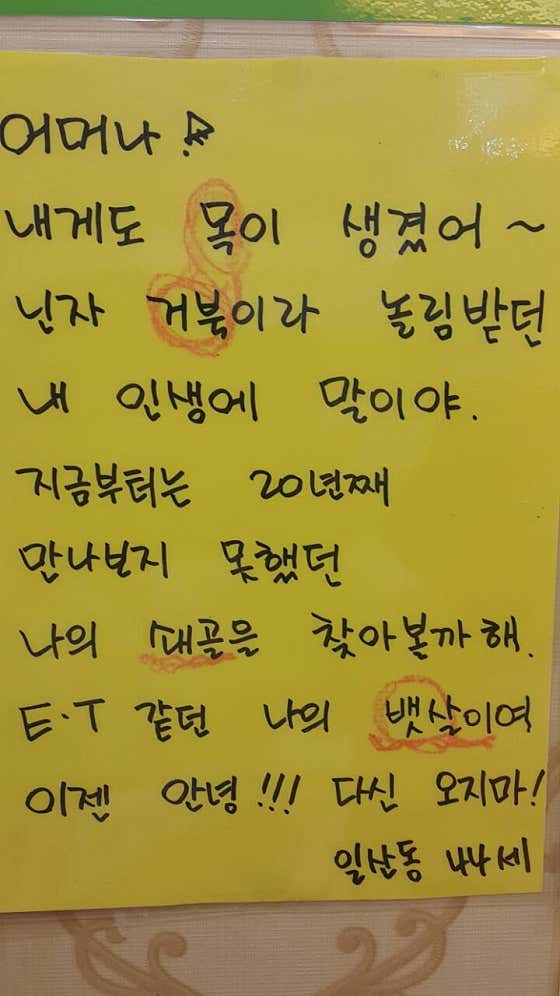 어머나!
내게도 목이 생겼어~
닌자 거북이라 놀림받던
내 인생에 말이야.
지금부터는 20년째
만나보지 못했던
나의 쇄골을 찾아볼까 해.
E·T 같던 나의 뱃살이여
이젠 안녕!!! 다신 오지마!
일산동 44세